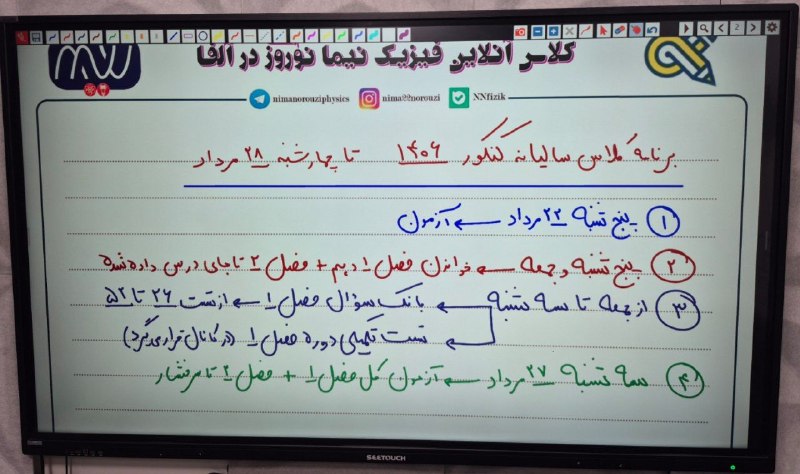 کلاس آنلاین فیزیک نیما نوروز در آلفا
nimanorouziphysics nima22norouzi NNfizik
برنامه کلاس سالیانه کنکور ۱۴۰۶ تا چهارشنبه ۲۸ مرداد
۱ پنج شنبه ۲۲ مرداد ← آزمون
۲ پنج شنبه و جمعه ← خواندن فصل ۱ دهم + فصل ۲ تا جای درس داده شده
۳ از جمعه تا سه شنبه ← بانک سؤال فصل ۱ ← از تست ۲۶ تا ۵۲
← تست تکمیلی دوره فصل ۱ (در کانال قرار می گیرد)
۴ سه شنبه ۲۷ مرداد ← آزمون کل فصل ۱ + فصل ۲ تا سر فشار
SEETOUCH